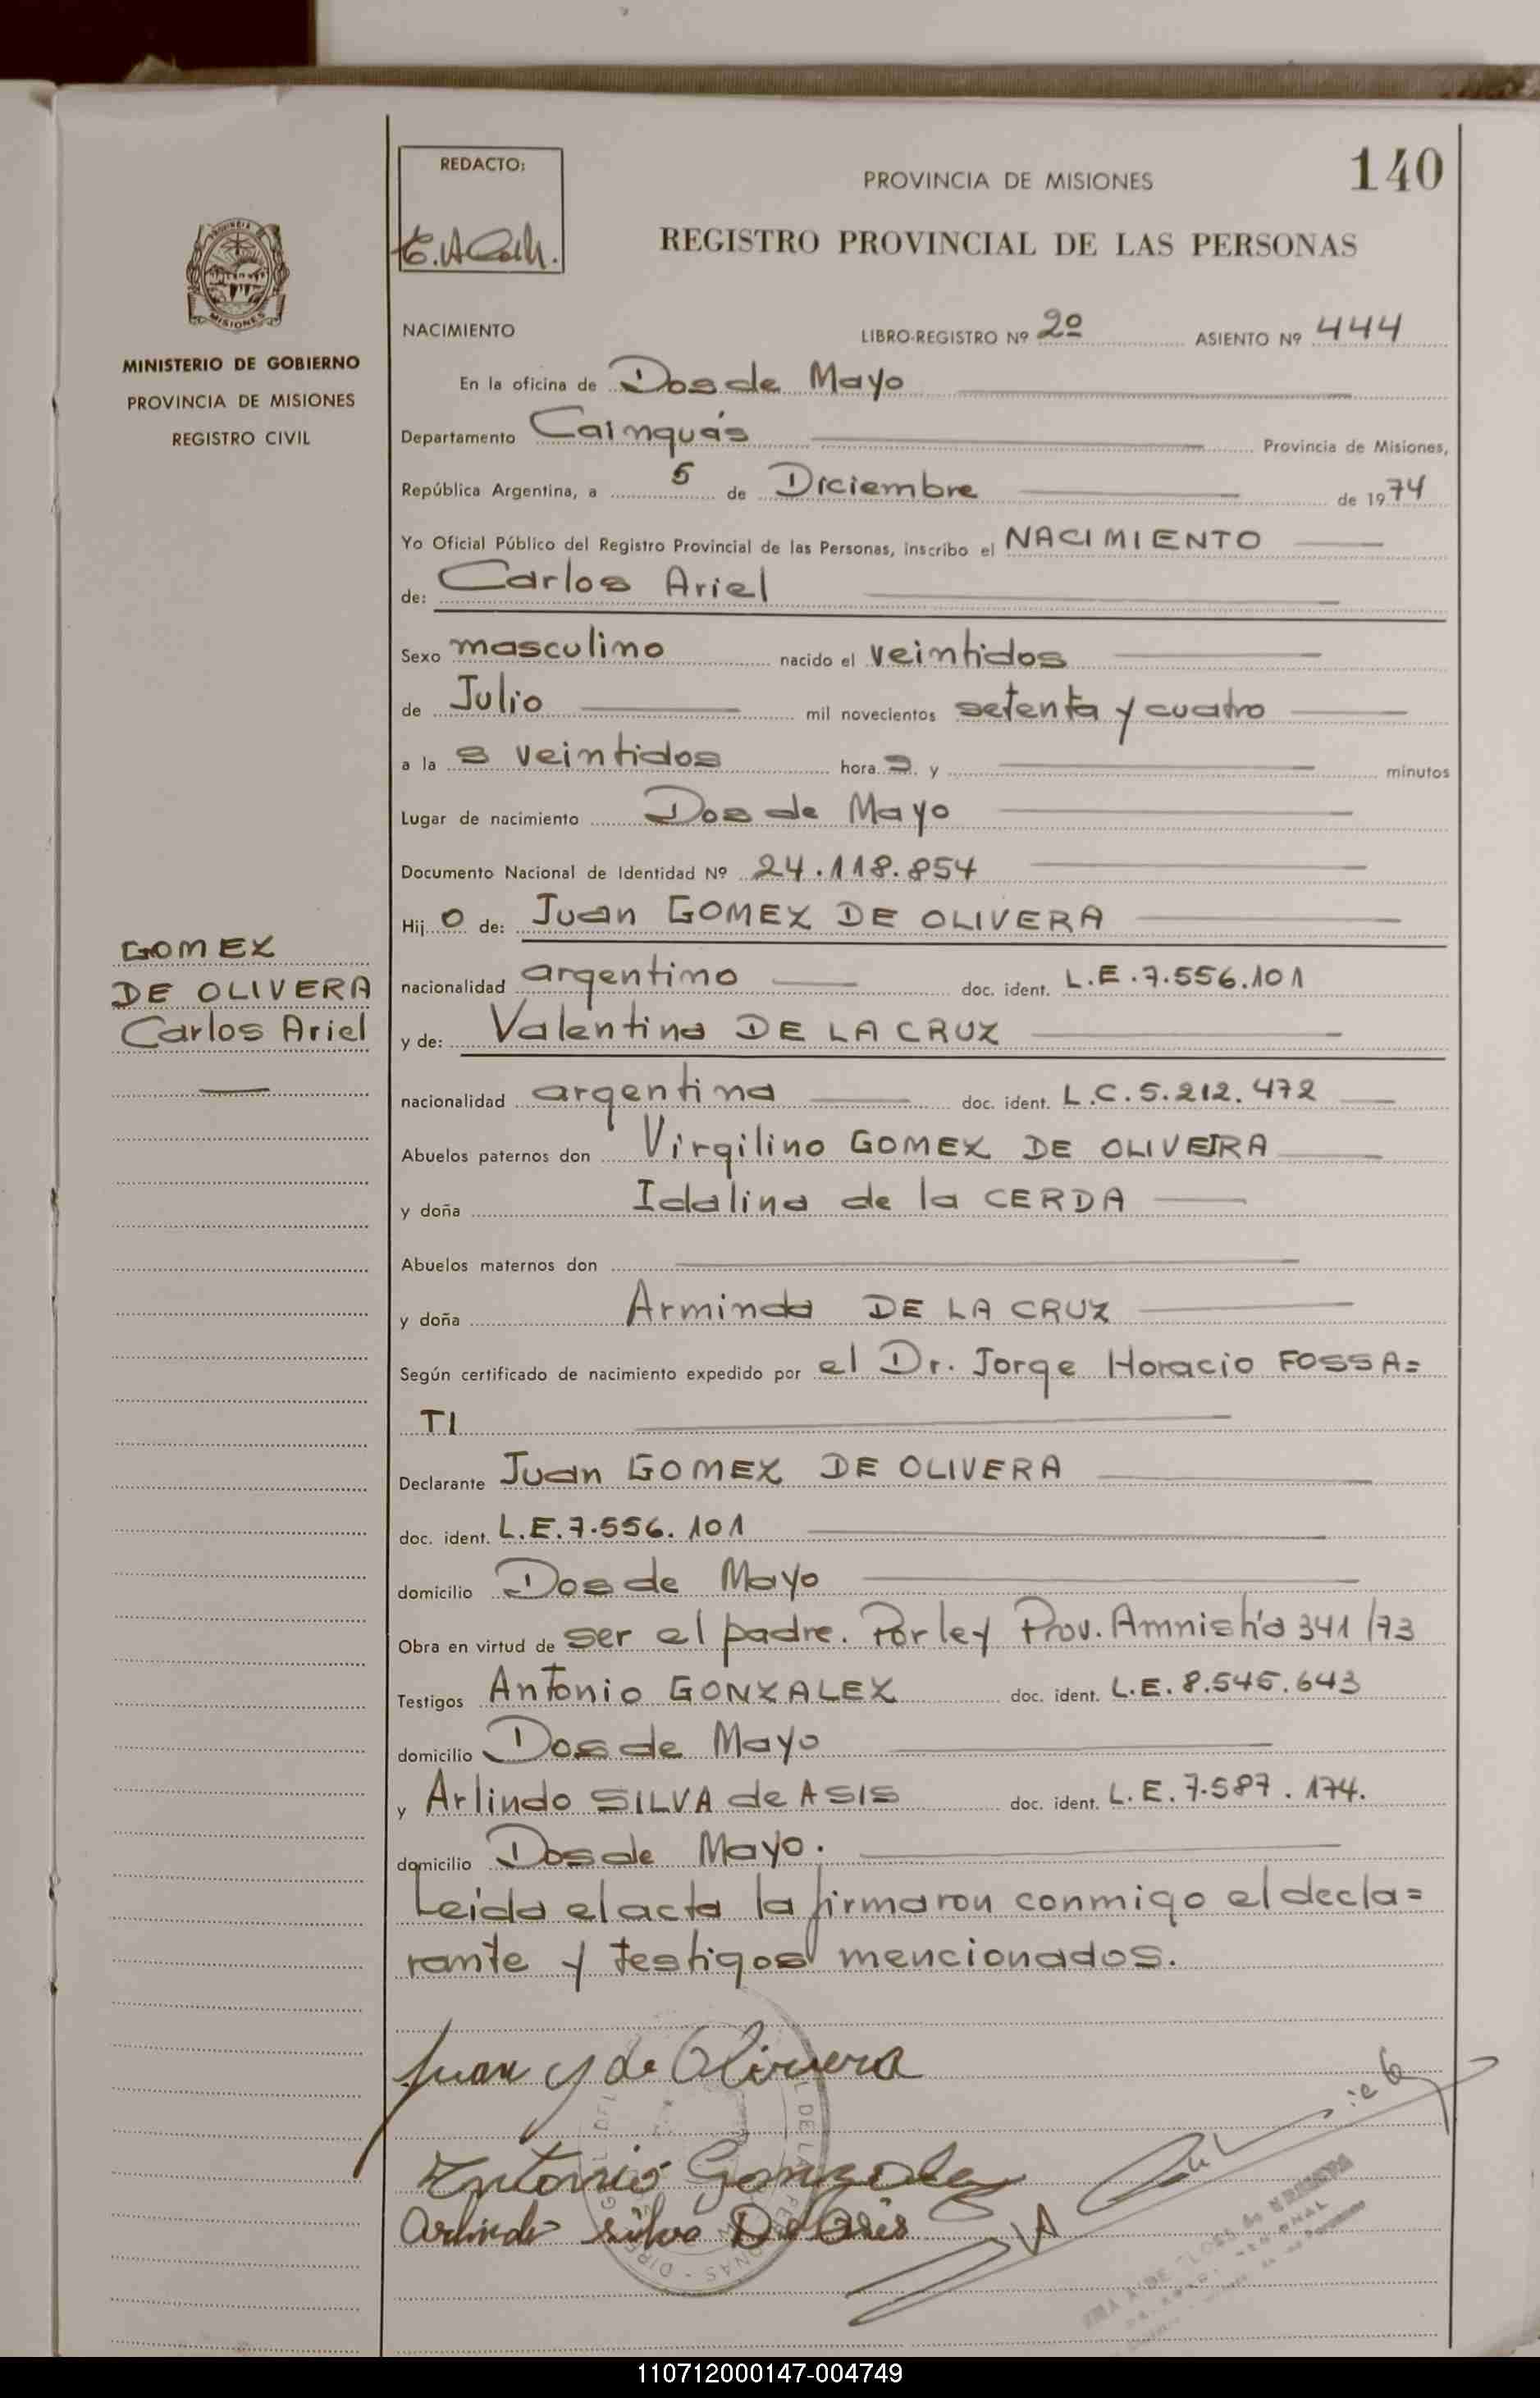 140
REDACTO:
PROVINCIA DE MISIONES
REGISTRO PROVINCIAL DE LAS PERSONAS
MISIONES
MINISTERIO DE GOBIERNO
PROVINCIA DE MISIONES
REGISTRO CIVIL
NACIMIENTO LIBRO-REGISTRO Nº 2º ASIENTO Nº 444
En la oficina de Dos de Mayo
Departamento Cainguás Provincia de Misiones,
República Argentina, a 5 de Diciembre de 1974
Yo Oficial Público del Registro Provincial de las Personas, inscribo el NACIMIENTO
de: Carlos Ariel
Sexo masculino nacido el veintidos
de Julio mil novecientos setenta y cuatro
a la s veintidos hora s y minutos
Lugar de nacimiento Dos de Mayo
Documento Nacional de Identidad Nº 24.118.854
Hij o de: Juan GOMEZ DE OLIVERA
GOMEZ
DE OLIVERA
Carlos Ariel
nacionalidad argentino doc. ident. L.E.7.556.101
y de: Valentina DE LA CRUZ
nacionalidad argentina doc. ident. L.C.5.212.472
Abuelos paternos don Virgilino GOMEZ DE OLIVEIRA
y doña Idalina de la CERDA
Abuelos maternos don
y doña Arminda DE LA CRUZ
Según certificado de nacimiento expedido por el Dr. Jorge Horacio FOSSA=
TI
Declarante Juan GOMEZ DE OLIVERA
doc. ident. L.E.7.556.101
domicilio Dos de Mayo
Obra en virtud de ser el padre. Por ley Prov. Amnistía 341/73
Testigos Antonio GONZALEZ doc. ident. L.E. 8.545.643
domicilio Dos de Mayo
y Arlindo SILVA de ASIS doc. ident. L.E. 7.587.174.
domicilio Dos de Mayo.
Leida el acta la firmaron conmigo el decla=
rante y testigos mencionados.
Juan g de Olivera
Antonio Gonzalez
Arlindo Silva De Asis
110712000147-004749